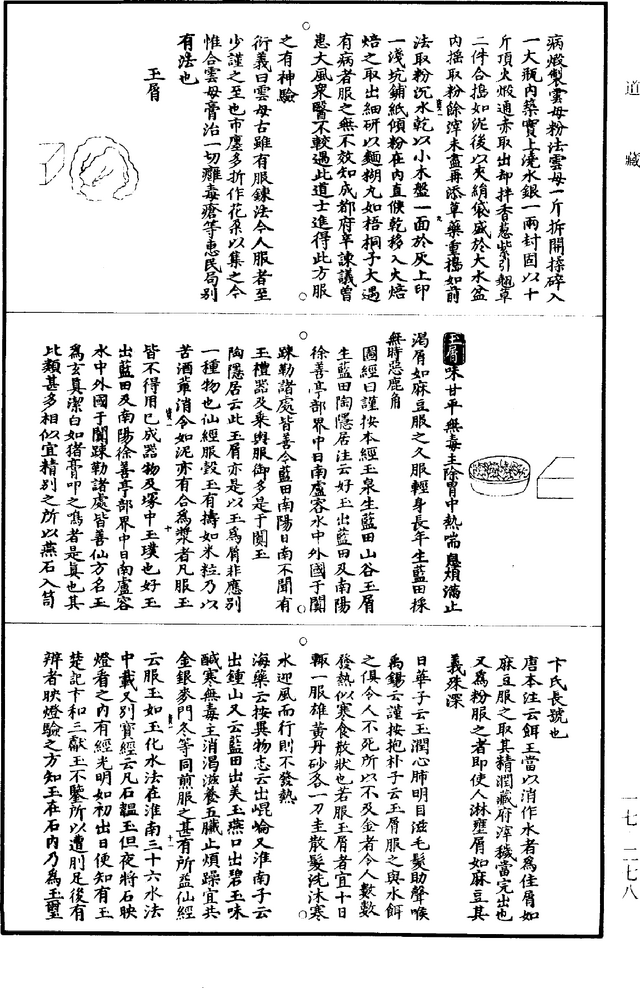 道藏
病煅製雲母粉法雲母一斤拆開揉碎入
一大瓶內築實上澆水銀一兩封固以十
斤頂火煅通赤取出却拌香葱紫引翹草
二件合搗如泥後以夾絹袋盛於大水盆
內搖取粉餘滓未盡再添草藥重搗如前
法取粉沉水乾以小木盤一面於灰上印
一淺坑鋪紙傾粉在內直候乾移入火焙
焙之取出細研以麵糊丸如梧桐子大遇
有病者服之無不效知成都府辛諫議曾
患大風衆醫不較遇此道士進得此方服
之有神驗
衍義曰雲母古雖有服鍊法今人服者至
少謹之至也市廛多折作花朵以集之今
惟合雲母膏治一切癰毒瘡等惠民局別
有法也
玉屑
玉屑味甘平無毒主除胃中熱喘息煩滿止
渴屑如麻豆服之久服輕身長年生藍田採
無時惡鹿角
圖經曰謹按本經玉泉生藍田山谷玉屑
生藍田陶隱居注云好玉出藍田及南陽
徐善亭部界中日南盧容水中外國于闐
踈勒諸處皆善今藍田南陽日南不聞有
玉禮器及乘輿服御多是于闐玉
陶隱居云此玉屑亦是以玉為屑非應別
一種物也仙經服穀玉有擣如米粒乃以
苦酒輩消令如泥亦有合為漿者凡服玉
皆不得用已成器物及塚中玉璞也好玉
出藍田及南陽徐善亭部界中日南盧容
水中外國于闐踈勒諸處皆善仙方名玉
為玄真潔白如猪膏叩之鳴者是真也其
比類甚多相似宜精別之所以燕石入笥
卞氏長號也
唐本注云餌玉當以消作水者為佳屑如
麻豆服之取其精潤藏府滓穢當完出也
又為粉服之者即使人淋壅屑如麻豆其
義殊深
日華子云玉潤心肺明目滋毛髮助聲喉
禹錫云謹按抱朴子云玉屑服之與水餌
之俱令人不死所以不及金者令人數數
發熱似寒食散狀也若服玉屑者宜十日
輒一服雄黃丹砂各一刀圭散髮洗沐寒
水迎風而行則不發熱
海藥云按異物志云出崐崘又淮南子云
出鍾山又云藍田出美玉燕口出碧玉味
鹹寒無毒主消渴滋養五臟止煩躁宜共
金銀麥門冬等同煎服之甚有所益仙經
云服玉如玉化水法在淮南三十六水法
中載又別寶經云凡石韞玉但夜將石映
燈看之內有經光明如初出日便知有玉
楚記卞和三獻玉不鑒所以遭刖足後有
辯者映燈驗之方知玉在石內乃為玉璽
一七 二七八